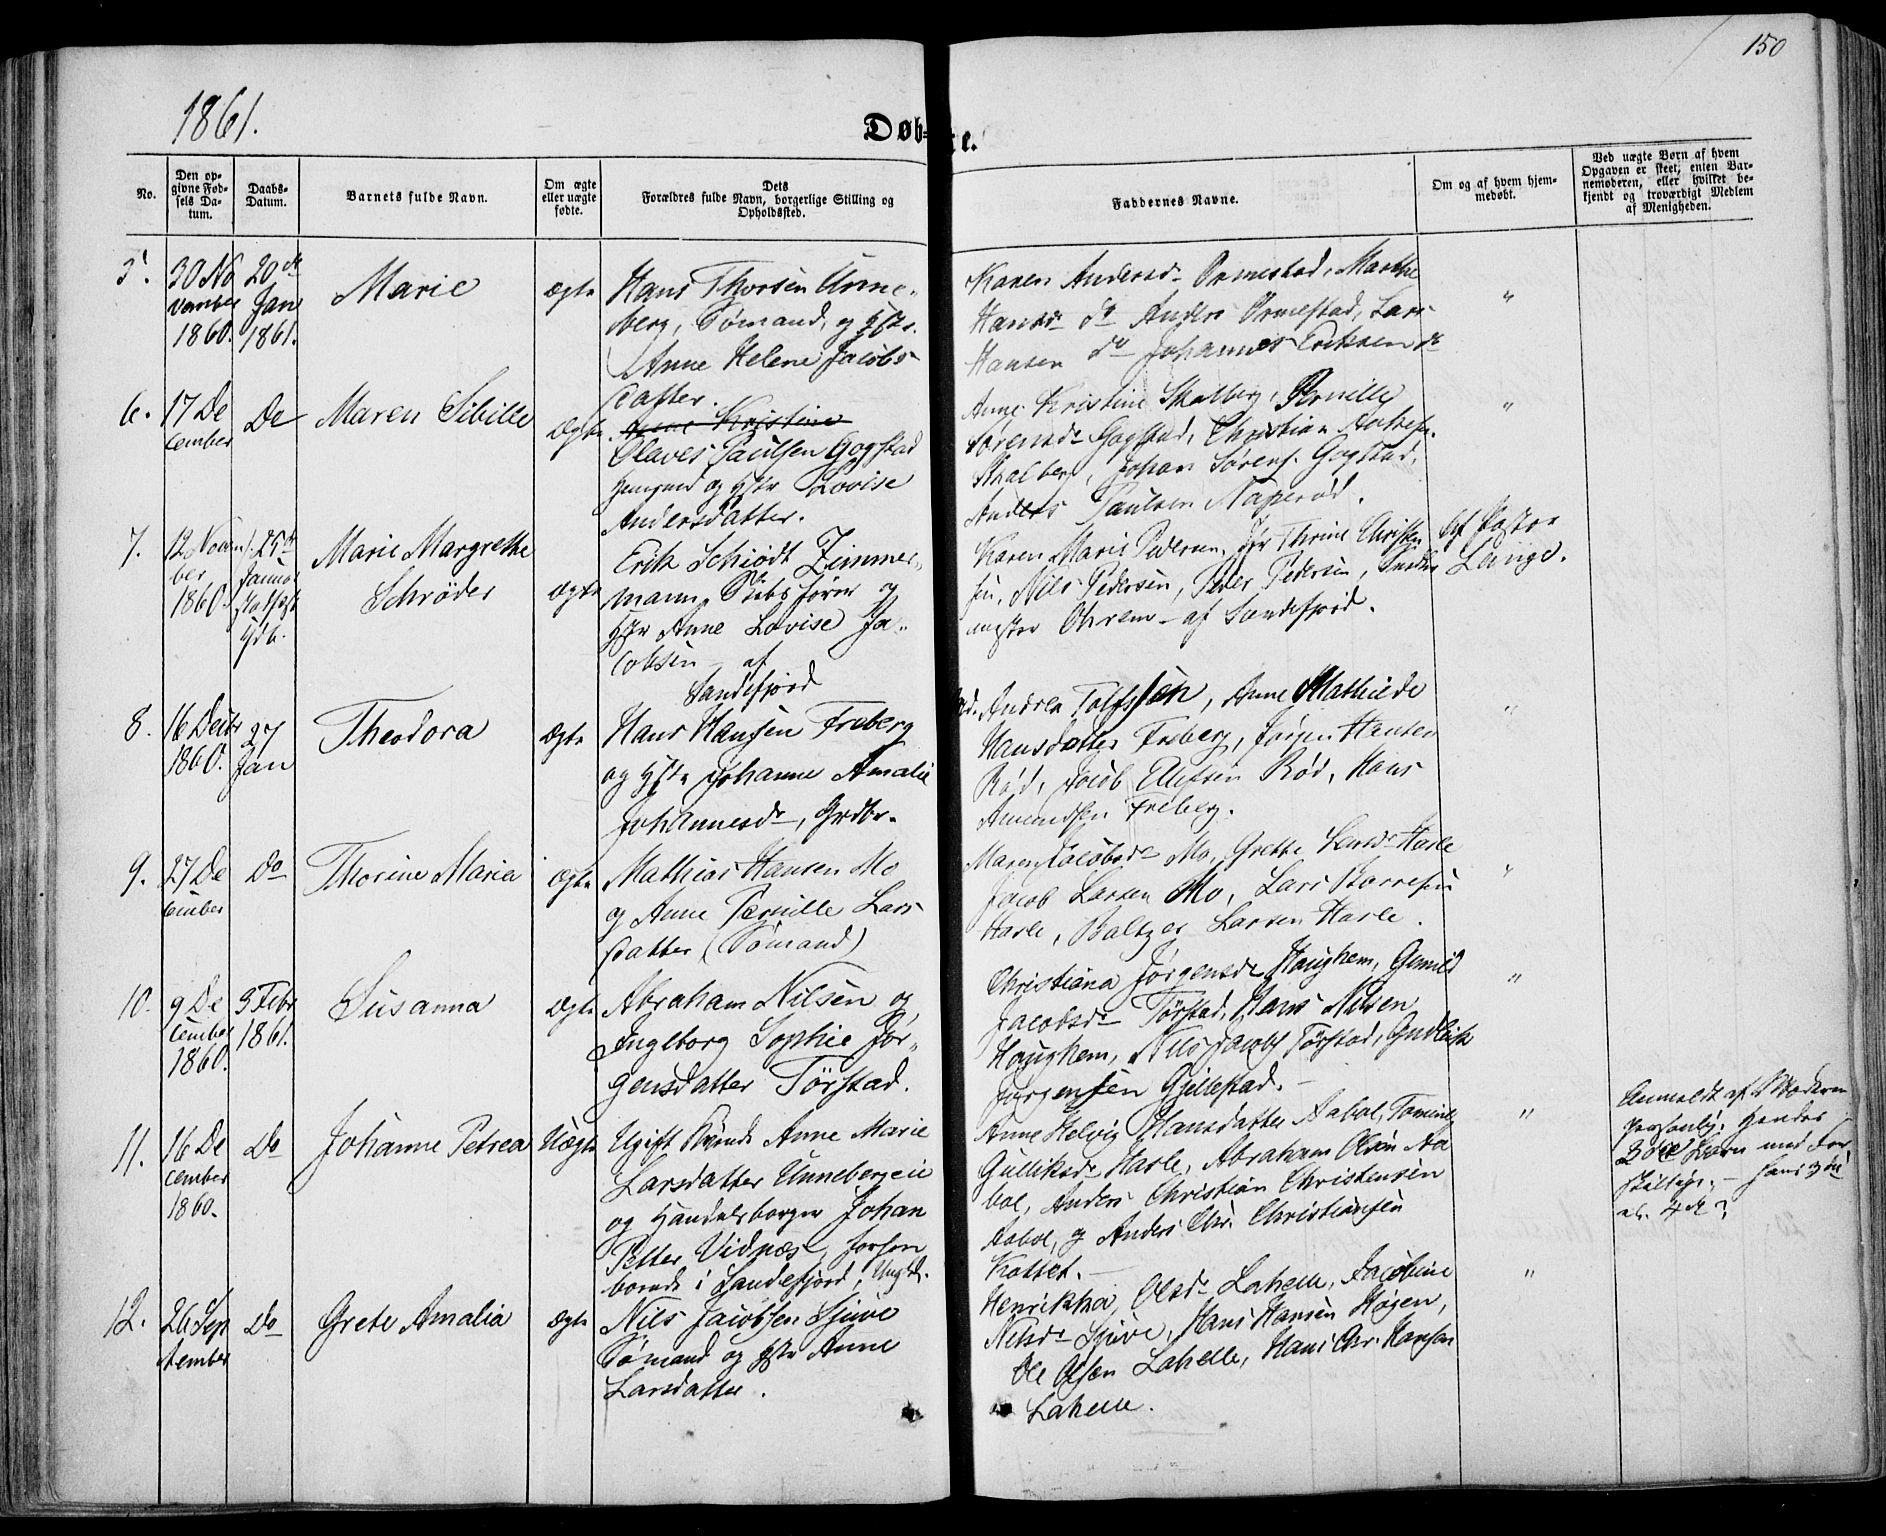 150
1861.
Døb-te.
No.
Den opgivne Fødsels Datum.
Daabs-Datum.
Barnets fulde Navn.
Om ægte eller uægte fødte.
Dets Forældres fulde Navn, borgerlige Stilling og Opholdssted.
Faddernes Navne.
Om og af hvem hjemmedøbt.
Ved uægte Børn af hvem Opgaven er skeet, enten Barnemøderen, eller hvilket bekjendt og troværdigt Medlem af Menigheden.
5.
30 No
vember
1860.
20de
Jan
1861.
Marie
ægte
Hans Thorsen Unne-
berg, Sømand, og Hstr.
Anne Helene Jacobs
datter.
Karen Andersdr Ormestad, Marthe
Hansdr do Anders Ormestad, Lars
Hansen do Johannes Eriksen do
"
6.
17 De
cember
Do
Maren Sibille
Ægte
Anne Kristine
Olaves Paulsen Gogstad
og Hstr Lovise
Andersdatter.
Anne Kristine Skalberg, Pernille
Sørensdr Gogstad, Christian
Skalberg, Johan Sørens. Gogstad,
Anders Paulsen Naperød.
"
7.
12 Novem
ber
1860.
25de
Januar
Marie Margrethe
Schrøder
ægte
Erik Schiødt Zimmer-
mann, Skibsfører og
Hstr Anne Lovise Ja-
cobsen af
Sandefjord
Karen Marie Pedersen, Thrine Christen
sen, Nils Pedersen, Peder Pedersen,
Ohrem - af Sandefjord.
af Pastor
Lange.
8.
16 Decbr
1860.
27
Jan
Theodora
ægte
Hans Hansen Freberg
og Hstr Johanne Amalie
Johannesdr, Grdbr.
Andrea Tolfsen, Anne Mathilde
Hansdatter Freberg, Jørgen Hansen
Rød, Jacob Ellefsen Rød, Hans
Amundsen Freberg.
"
9.
27 De
cember
Do
Thorine Maria
ægte
Mathias Hansen Mo
og Anne Pernille Lars
datter (Sømand)
Maren Jacobsdr Mo, Grethe Larsdr Hasle
Jacob Larsen Mo, Lars
Hasle, Baltzer Larsen Hasle.
"
10.
9 De
cember
1860.
3 Febr
1861.
Susanna
Ægte
Abraham Nilsen og
Ingeborg Sophie Jør-
gensdatter Tørstad.
Christiana Jørgensdr Haughem, Gunild
Jacobsdr Tørstad, Hans Nilsen
Haughem, Nils Jacobs Tørstad, Gudleik
Jørgensen Gjellestad.
"
11.
16 De
cember
1860.
Do
Johanne Petrea
Uægte
Ugift Kvinde Anne Marie
Larsdatter Unnebergeie
og Handelsborger Johan
Petter Vidnæs, forhen
boende i Sandefjord, Ungk.
Anne Helvig Hansdatter Aabol,
Gulliksdr Hasle, Abraham Olsen Aa
bol, Anders Christian Christensen
Aabol, og Anders Chr. Christiansen
Kottet.
"
Anmeldt af Moderen
personlig. Hendes
3die Barn med For
skjellige. - Hans 3die
el. 4de?
12.
26 Sep
tember
Do
Grete Amalia
ægte
Nils Jacobsen Sjuve
Sømand og Hstr Anne
Larsdatter.
Henrikka Olsdr Lahelle, Jacobine
Nilsdr Sjuve, Hans Hansen Høgen,
Ole Olsen Lahelle, Hans Chr. Hansen
Lahelle.
"